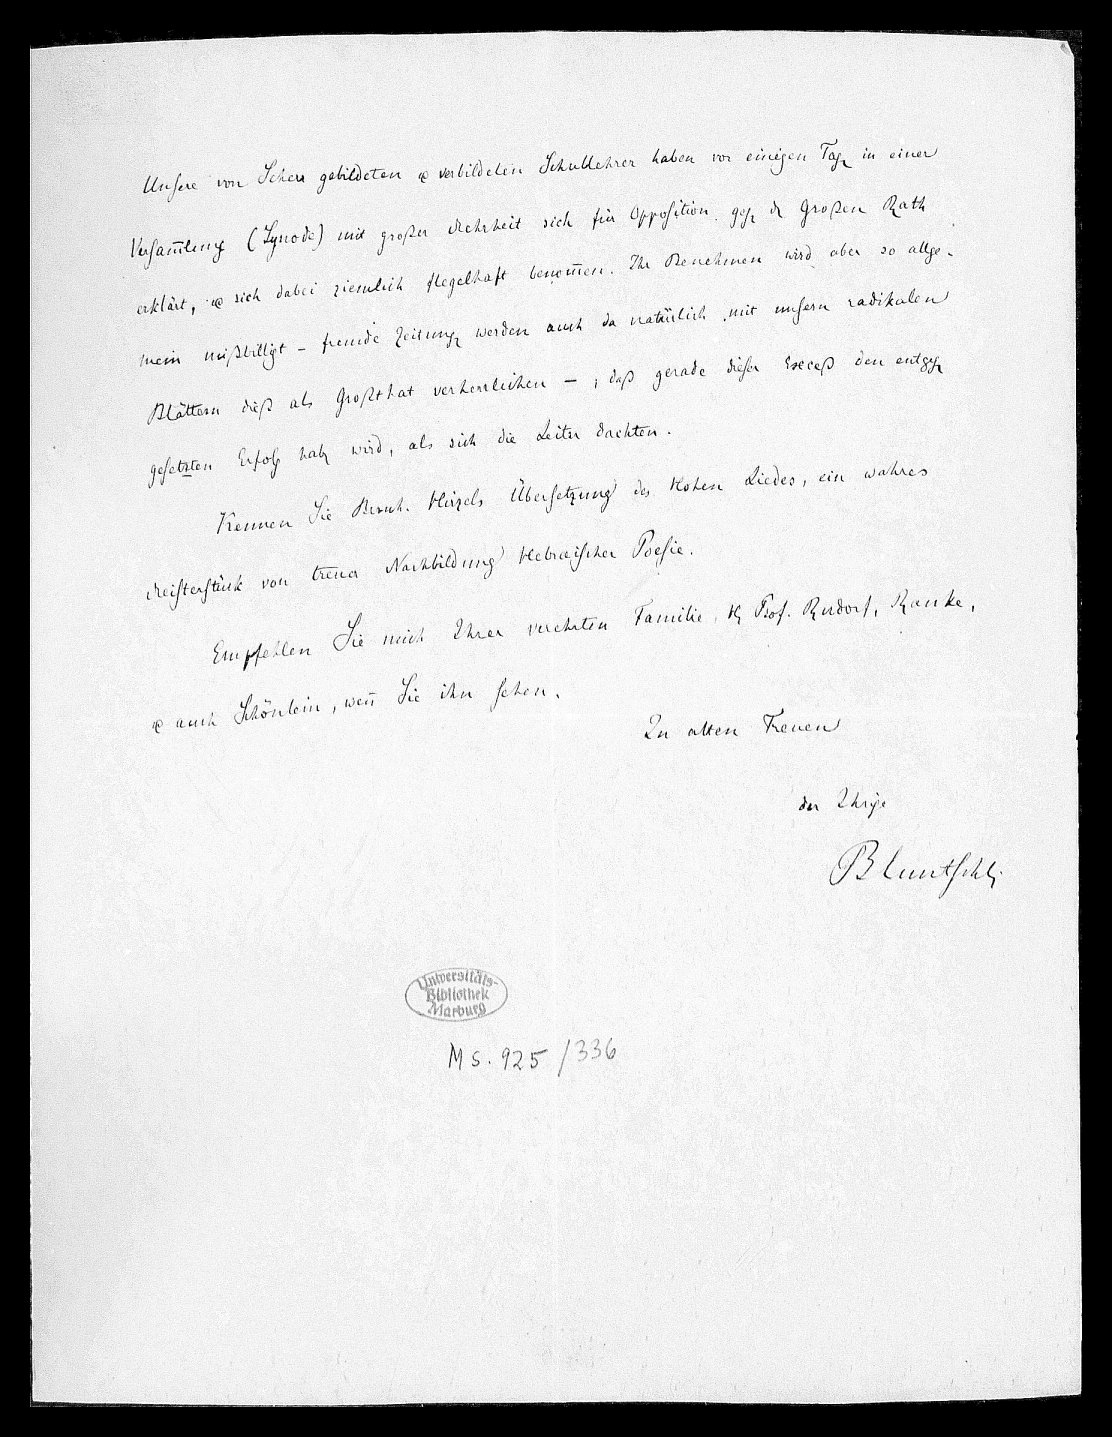 Unsere von Scherr gebildeten & verbildeten Schullehrer haben vor einigen Tag in einer
Versam̄lung (Synode) mit großer Mehrheit sich für Opposition geg d Großen Rath
erklärt, & sich dabei ziemlich flegelhaft benom̄en. Ihr Benehmen wird aber so allge-
mein mißbilligt – fremde Zeitung werden auch da natürlich mit unsern radikalen
Blättern dieß als Großthat verherrlichen – , daß gerade dieser Exceß den entgeg
gesetzten Erfolg hab wird, als sich die Leiter dachten.
Kennen Sie Bernh. Hirzels Übersetzung des Hohen Liedes, ein wahres
Meisterstük von treuer Nachbildung Hebræischer Poesie.
Empfehlen Sie mich Ihrer verehrten Familie, H Prof. Rudorf, Ranke,
& auch Schönlein, wen̄ Sie ihn sehen.
In alten Treuen
der Ihrige
Bluntschli.
Universitäts-
Bibliothek
Marburg
Ms. 925/336